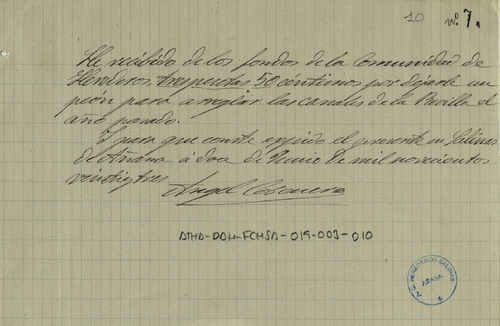 10 nº 7.
He recibido de los fondos de la Comunidad de
Herederos, tres pesetas 50 céntimos por dejarle un
peón para arreglar las canales de la Revilla el
año pasado.
Y para que conste expido el presente en Salinas
de Añana á doce de Junio de mil novecientos
veintiytres
Angel
ATHA-DAH-FCHSA-019-003-010
HEREDEROS SALINAS
AÑANA